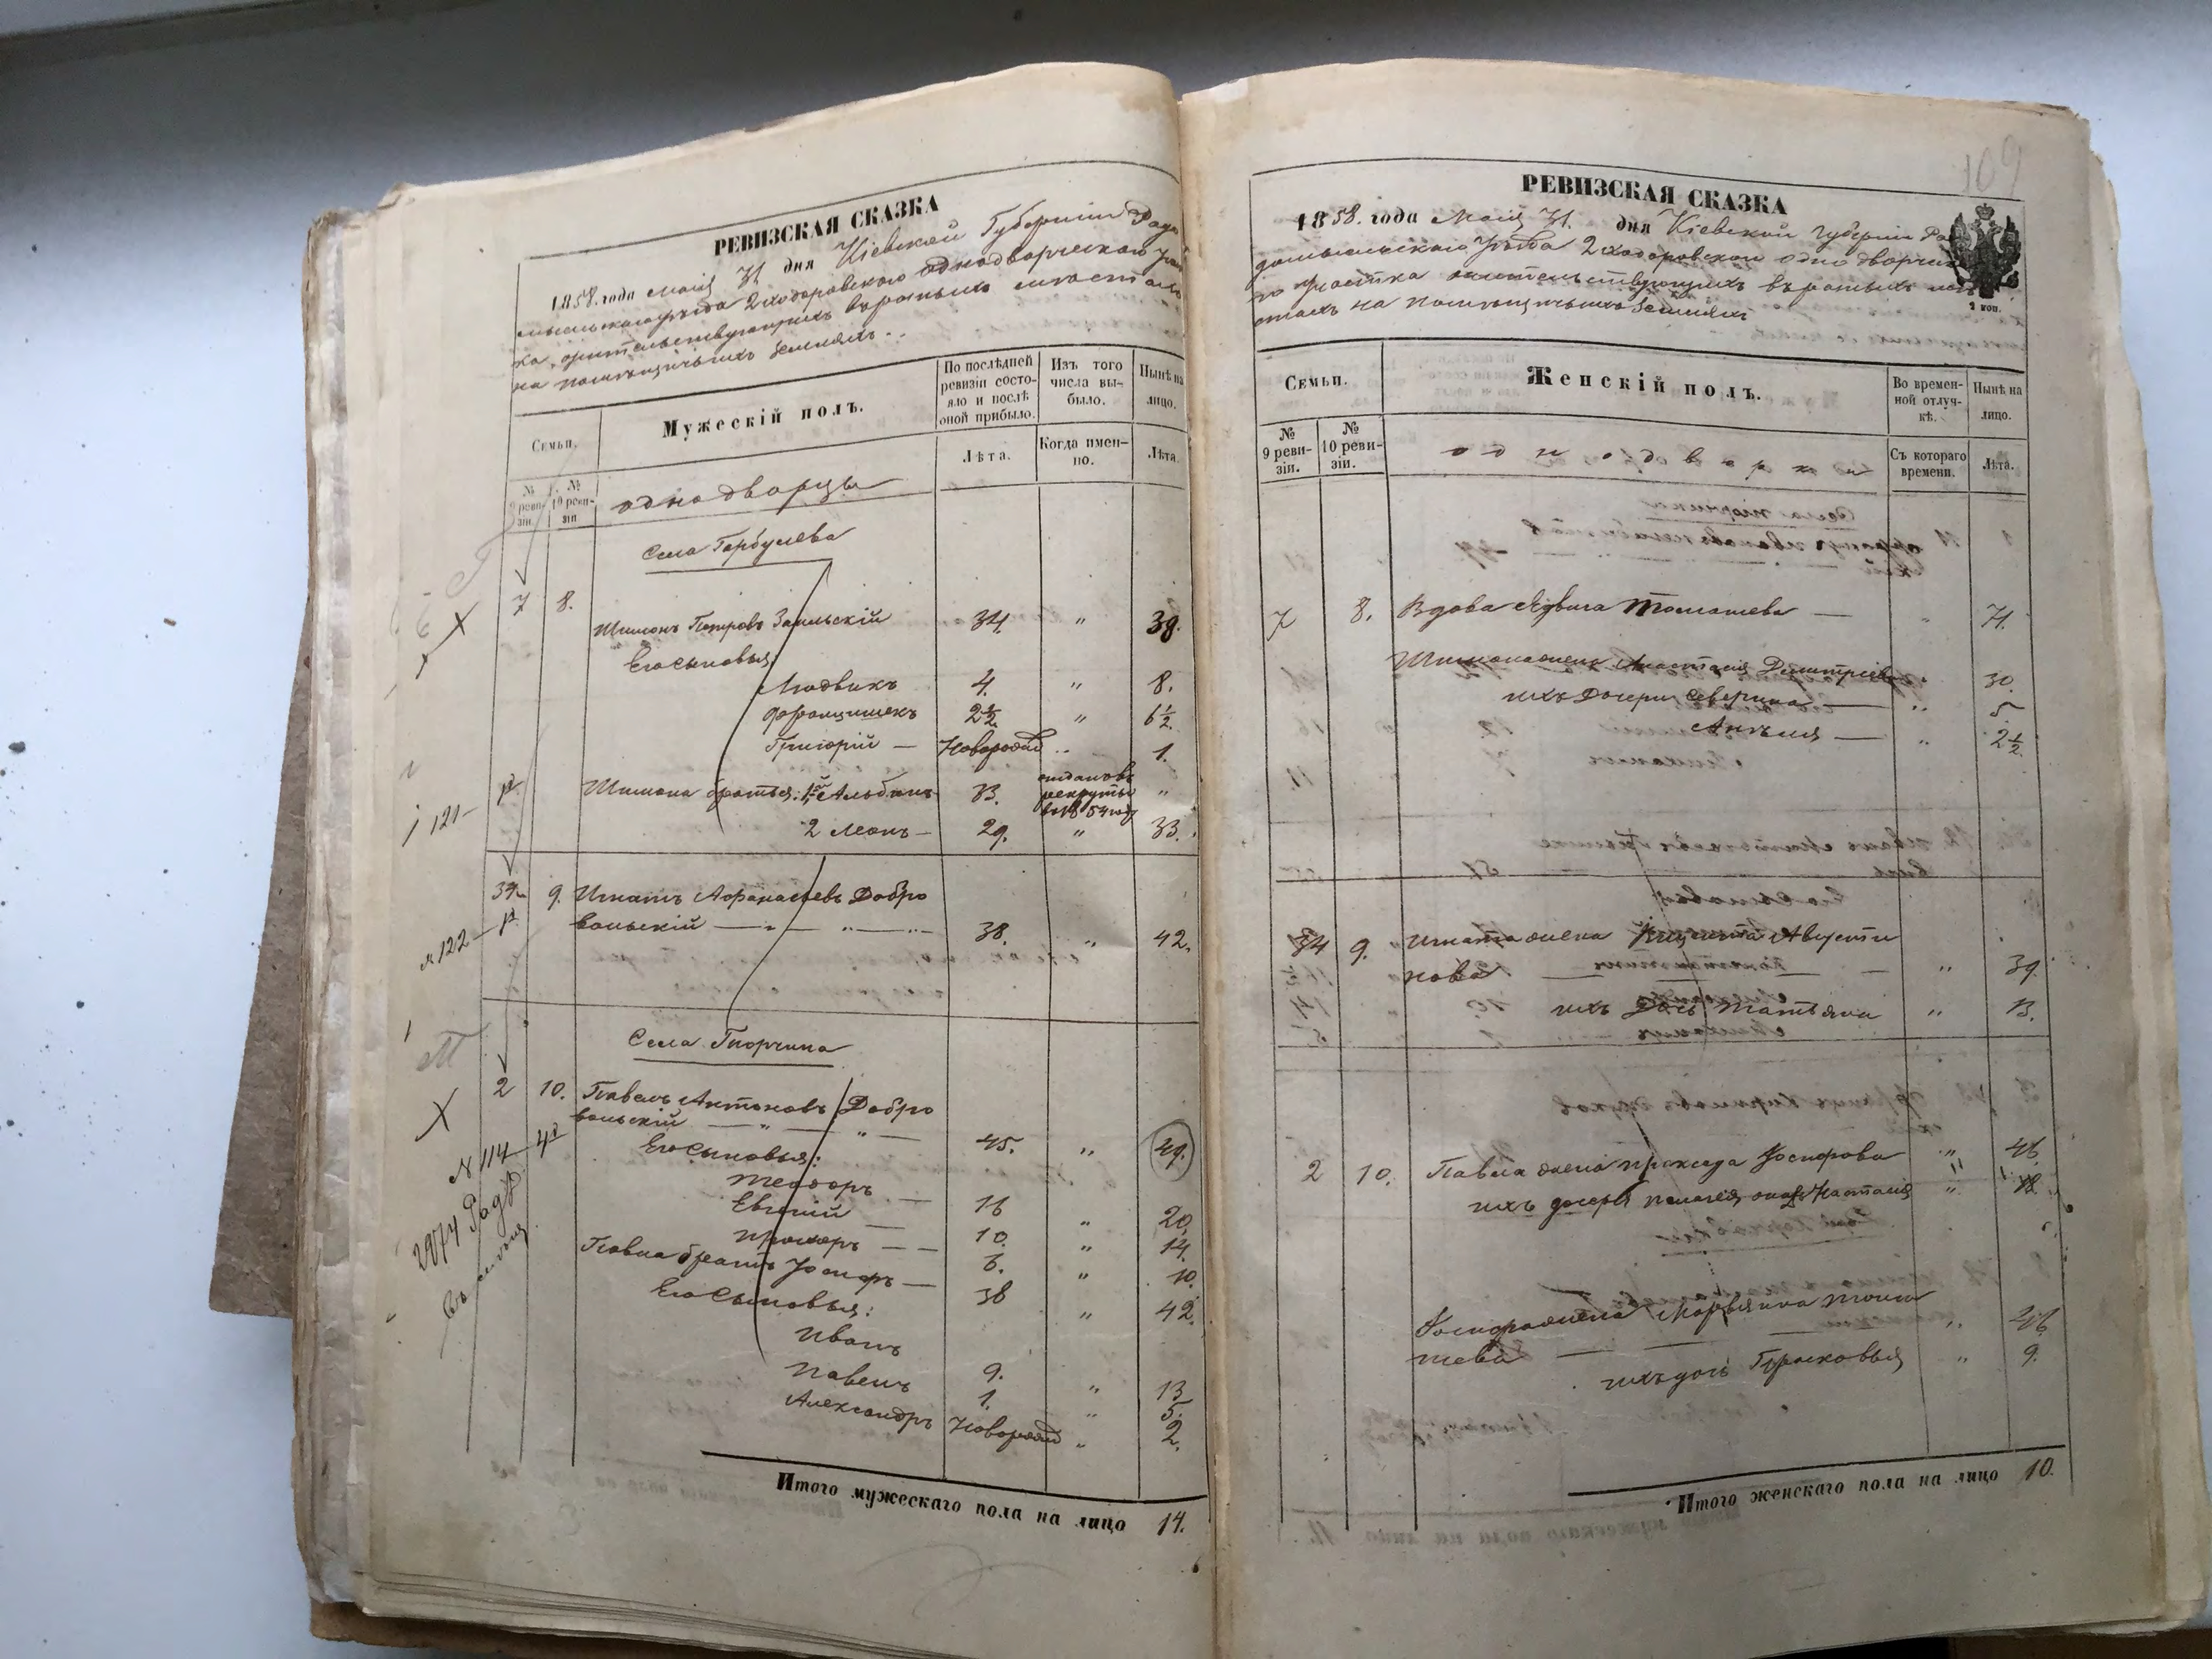 РЕВИЗСКАЯ СКАЗКА
1858. года Маія 31 дня Кіевской Губерніи Радо
мысльскаго уѣзда 2 Ходоровского однодворческаго участ
ка, жительствующихъ въ разныхъ мѣстахъ
на помѣщичьихъ земляхъ.
Семьи.
№ 9 ревизіи.
№ 10 ревизіи
Мужескій полъ.
По послѣдней
ревизіи состо-
яло и послѣ
оной прибыло.
Лѣта.
Изъ того
числа вы-
было.
Когда имен-
но.
Нынѣ на
лицо.
Лѣта.
однодворцы
Села Гарбулева
7 8.
Шимонъ Петровъ 34. " 38.
Его сыновья:
Людвикъ 4. " 8.
Францишекъ 2½ " 6½.
Григорій — Новорожд " 1.
№ 121 Шимона братья: 1й Альбинъ 33. отдановъ рекруты въ 1854 году "
2 Леонъ — 29. " 33.
34 9. Игнатъ Афанасьевъ Добро
№ 122 вольскій — " — " — 38. " 42.
Села Гторчина
2 10. Павелъ Антоновъ Добро
вольскій — " — " — 45. " 49.
№ 114
Его сыновья:
Теодоръ — 16 " 20.
Евгеній — 10. " 14.
Прохоръ — 6. " 10.
Павла братъ Іосифъ — 38 " 42.
Его сыновья:
Иванъ 9. " 13
Павелъ 1. " 5.
Александръ Новорожд " 2.
Итого мужескаго пола на лицо 14.
109
РЕВИЗСКАЯ СКАЗКА
1858. года Маія 31. дня Кіевской Губерніи Ра
домысльскаго Уѣзда 2 Ходоровского одно дворческа
го участка жительствующихъ въ разныхъ мѣ
стахъ на помѣщичьихъ земляхъ
2 коп.
Семьи.
№
9 реви-
зіи.
№
10 реви-
зіи.
Женскій полъ.
Во времен-
ной отлуч-
кѣ.
Съ котораго
времени.
Нынѣ на
лицо.
Лѣта.
однодворки
7 8. Вдова Ядвига Томашева — " 71.
Шимона жена Анастасія Дмитріева " 30.
ихъ дочери Северина — " 5
Анѣля — " 2½
34 9. Игната жена Августи
нова — — — " 39.
ихъ дочь Татьяна " 13.
2 10. Павла жена Пракседа Іосифова " 46.
ихъ дочери Пелагея, она же Настасія " 18.
Іосифа жена Марьянна Тома
шева — — " 46.
ихъ дочь Прасковья " 9.
Итого женскаго пола на лицо 10.